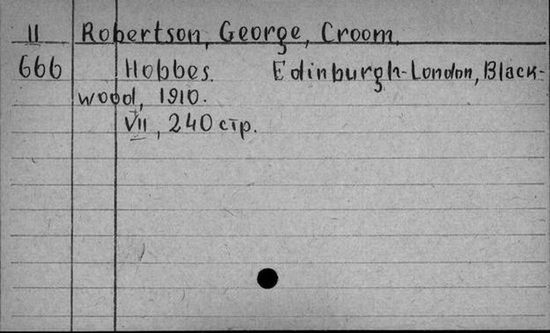 II Robertson, George, Croom.
666 Hobbes. Edinburgh-London, Black-
wood, 1910.
VII, 240 стр.